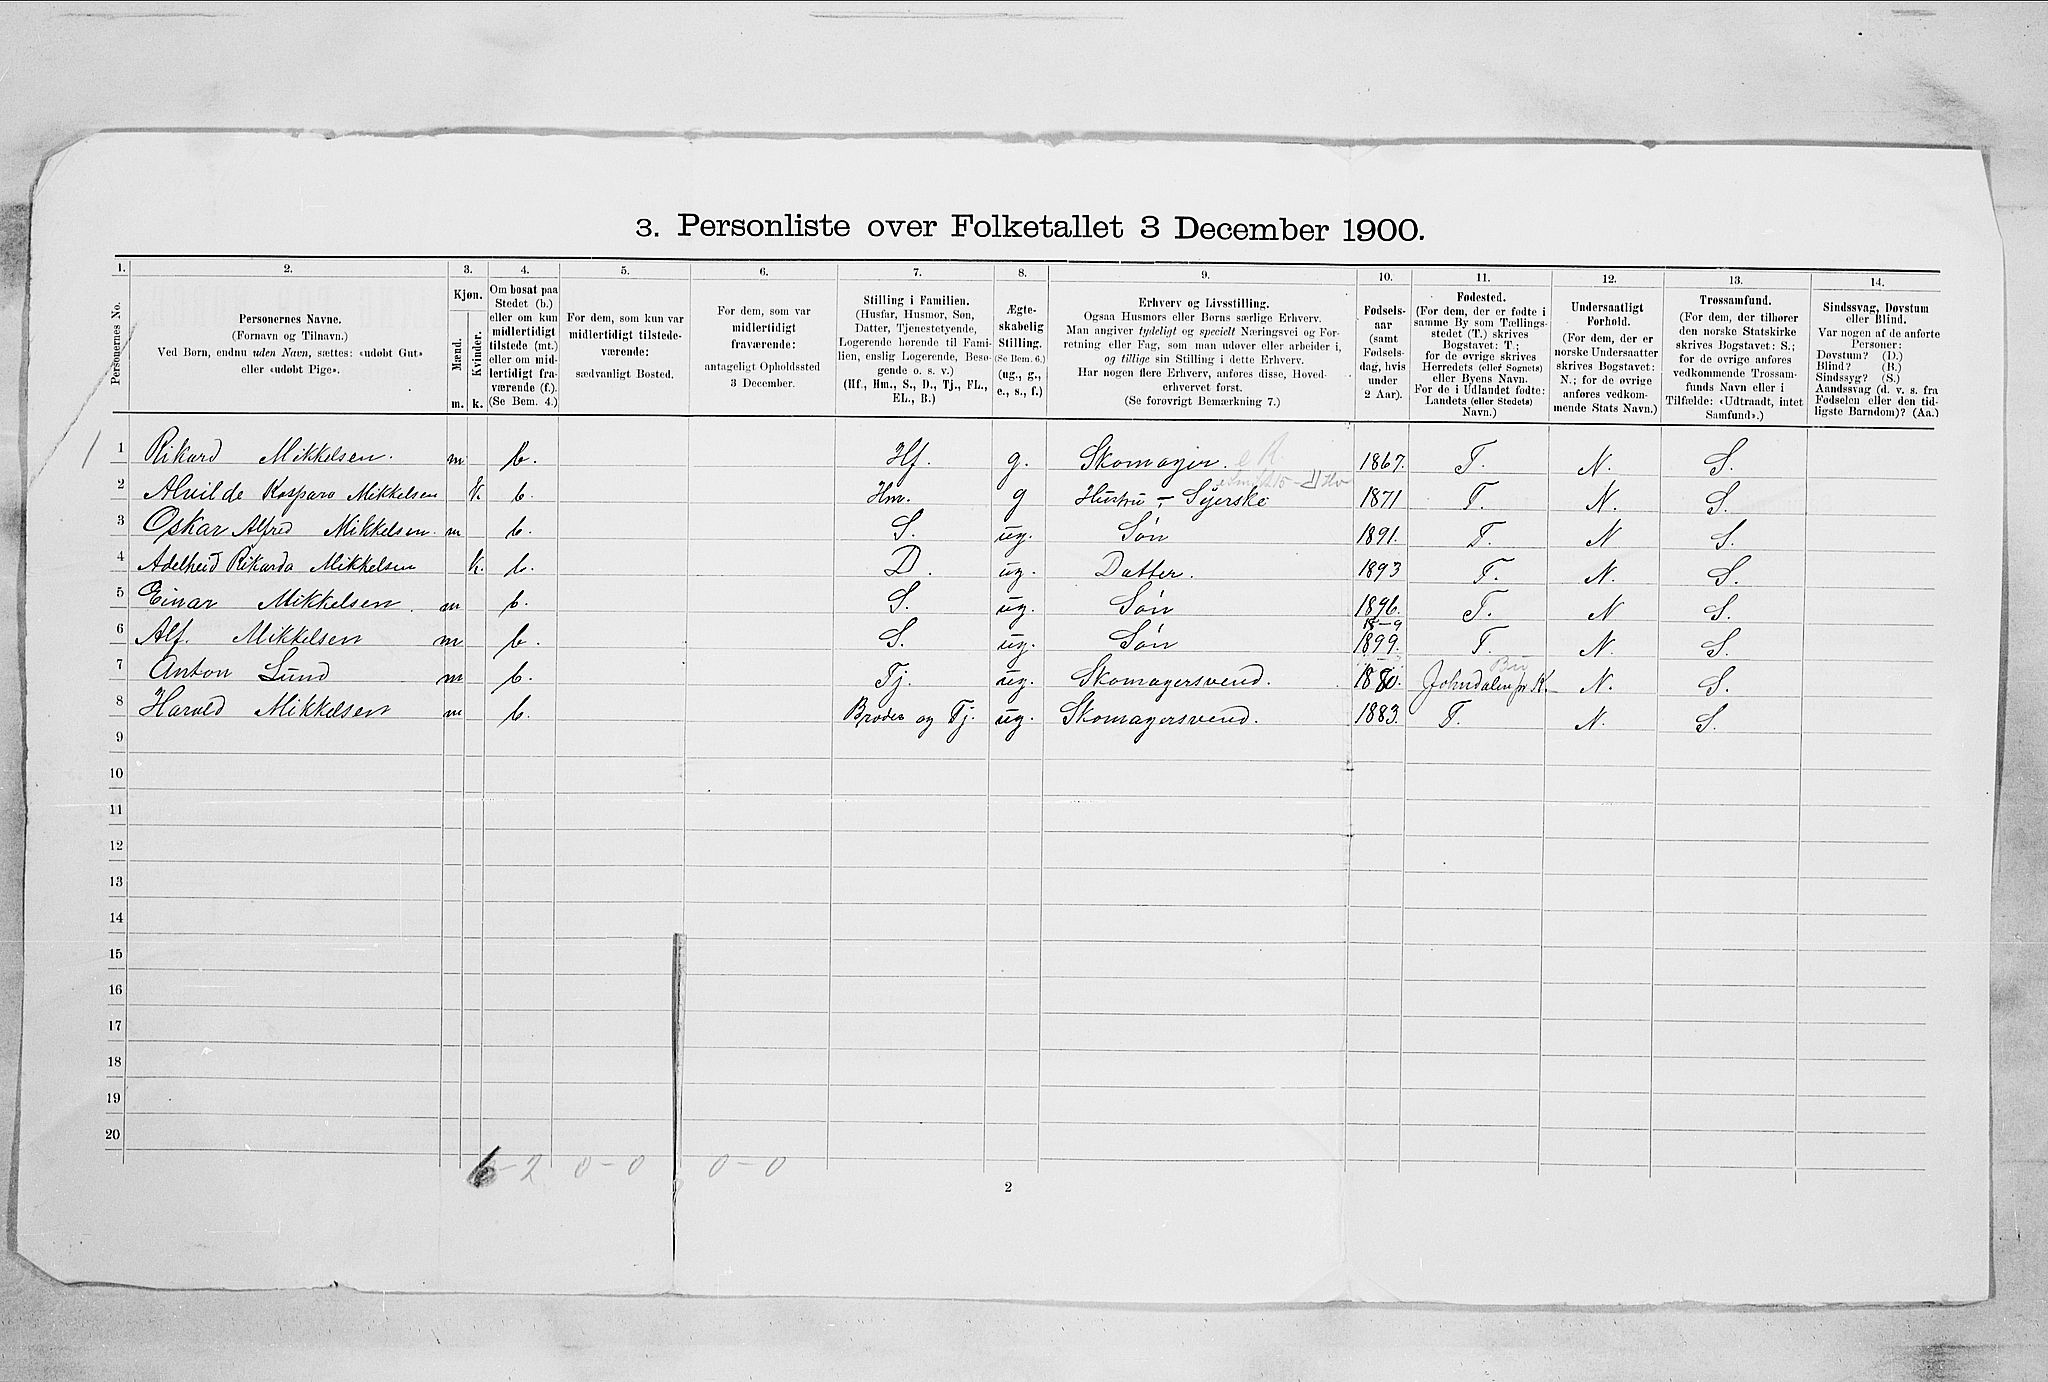 3. Personliste over Folketallet 3 December 1900.
1. 2. 3. 4. 5. 6. 7. 8. 9. 10. 11. 12. 13. 14.
Personernes No.
Personernes Navne.
(Fornavn og Tilnavn.)
Ved Børn, endnu uden Navn, sættes: «udøbt Gut»
eller «udøbt Pige».
Kjøn.
Mænd.
Kvinder.
m. k.
Om bosat paa
Stedet (b.)
eller om kun
midlertidigt
tilstede (mt.)
eller om mid-
lertidigt fra-
værende (f.).
(Se Bem. 4.)
For dem, som kun var
midlertidigt tilstede-
værende:
sædvanligt Bosted.
For dem, som var
midlertidigt
fraværende:
antageligt Opholdssted
3 December.
Stilling i Familien.
(Husfar, Husmor, Søn,
Datter, Tjenestetyende,
Logerende hørende til Fami-
lien, enslig Logerende, Besø-
gende o. s. v.)
(Hf., Hm., S., D., Tj., FL.,
EL., B.)
Ægte-
skabelig
Stilling.
(Se Bem. 6.)
(ug., g.,
e., s., f.)
Erhverv og Livsstilling.
Ogsaa Husmors eller Børns særlige Erhverv.
Man angiver tydeligt og specielt Næringsvei og For-
retning eller Fag, som man udøver eller arbeider i,
og tillige sin Stilling i dette Erhverv.
Har nogen flere Erhverv, anføres disse, Hoved-
erhvervet først.
(Se forøvrigt Bemærkning 7.)
Fødsels-
aar
(samt
Fødsels-
dag, hvis
under
2 Aar).
Fødested.
(For dem, der er fødte i
samme By som Tællings-
stedet (T.) skrives
Bogstavet: T.;
for de øvrige skrives
Herredets (eller Sognets)
eller Byens Navn.
For de i Udlandet fødte:
Landets (eller Stedets)
Navn.)
Undersaatligt
Forhold.
(For dem, der er
norske Undersaatter
skrives Bogstavet:
N.; for de øvrige
anføres vedkom-
mende Stats Navn.)
Trossamfund.
(For dem, der tilhører
den norske Statskirke
skrives Bogstavet: S.;
for de øvrige anføres
vedkommende Trossam-
funds Navn eller i
Tilfælde: «Udtraadt, intet
Samfund».)
Sindssvag, Døvstum
eller Blind.
Var nogen af de anførte
Personer:
Døvstum? (D.)
Blind? (B.)
Sindssyg? (S.)
Aandssvag (d. v. s. fra
Fødselen eller den tid-
ligste Barndom)? (Aa.)
1 Rikard Mikkelsen. m b. Hf. g. Skomager. 1867. T. N. S.
2 Alvilde Kaspara Mikkelsen k. b. Hm. g Hustru - Syerske 1871 T. N. S.
3 Oskar Alfred Mikkelsen. m b. S. ug. Søn 1891. T. N S.
4 Adelheid Rikarda Mikkelsen k. b. D. ug. Datter. 1893 T. N. S.
5 Einar Mikkelsen. m b. S. ug. Søn 1896. T. N S.
15-9
6 Alf. Mikkelsen m b. S. ug. Søn 1899. T. N. S.
7 Anton Lund m b. Tj. ug. Skomagersvend. 1880. N. S.
8 Harald Mikkelsen m b. Broder og Tj. ug. Skomagersvend. 1883. T. N. S.
9
10
11
12
13
14
15
16
17
18
19
20
6-2 0-0 0-0
2